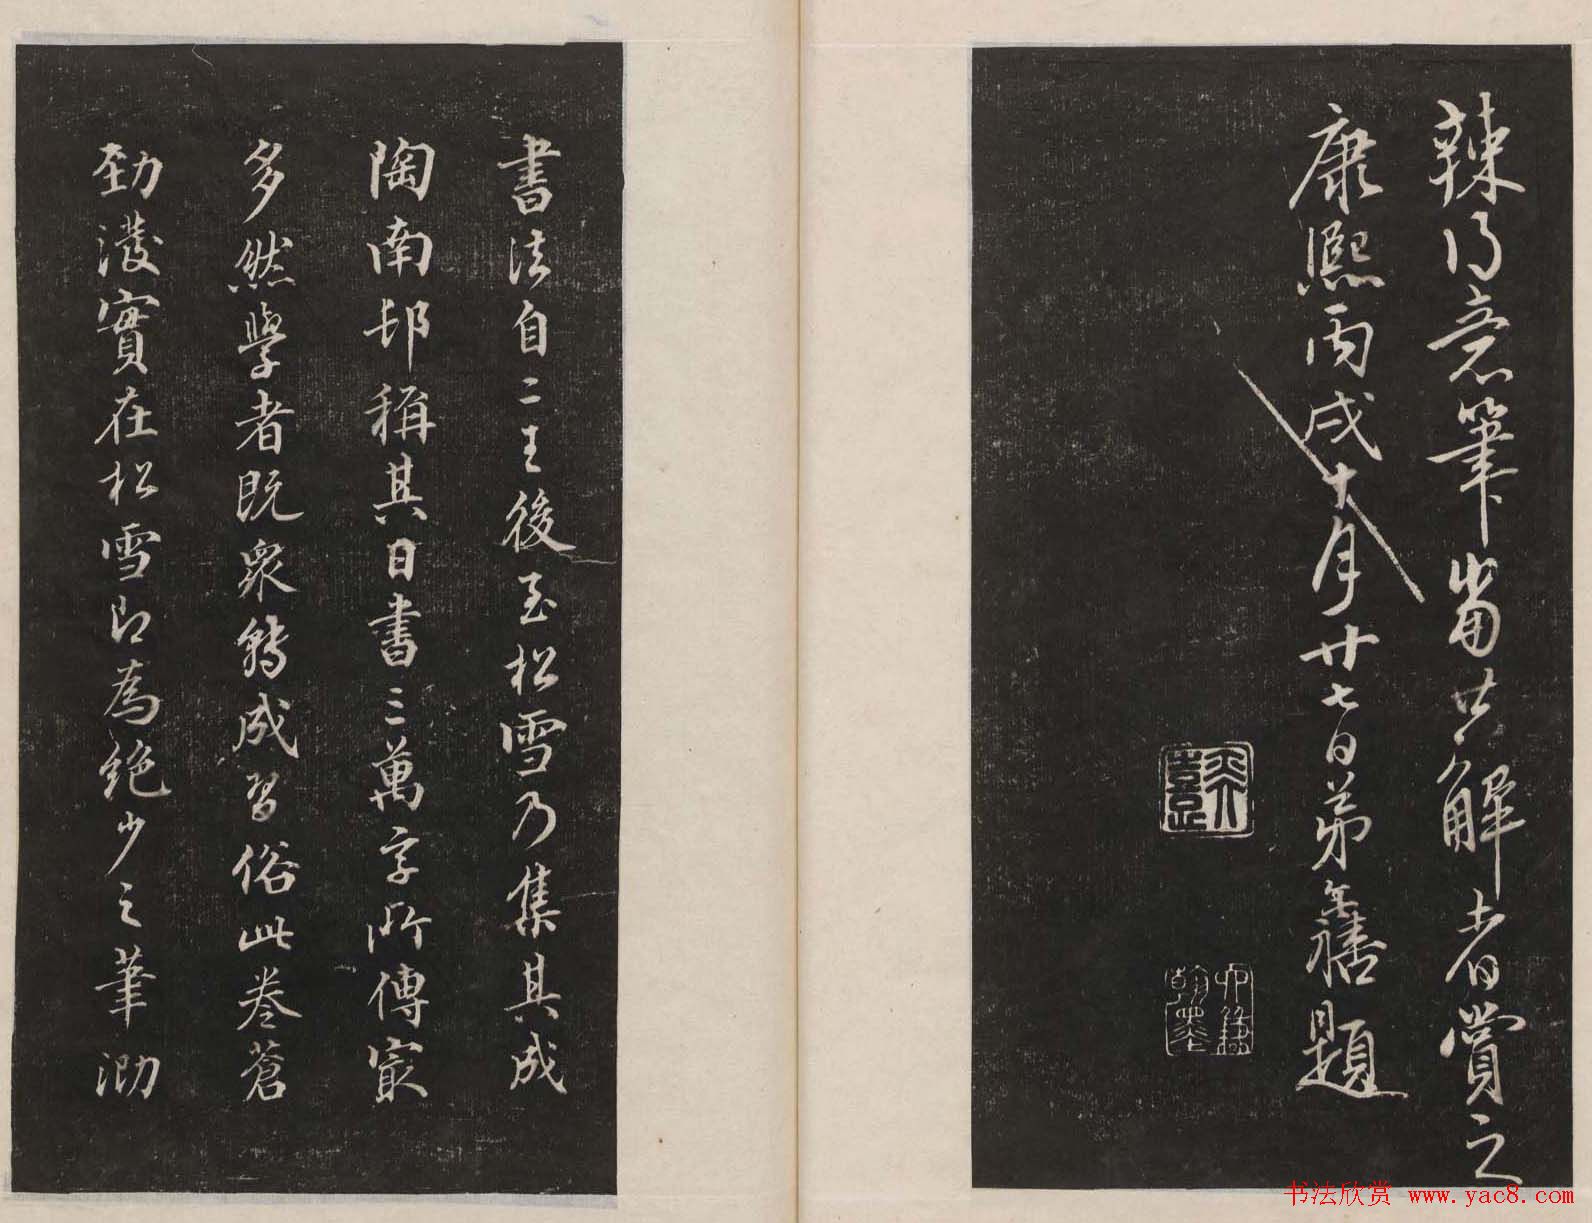 辣得意筆當共解者賞之
康熙丙戌十月廿七日弟題
書法自二王後至松雪乃集其成
陶南邨稱其日書三萬字所傳㝡
多然學者既衆轉成習俗此卷蒼
勁實在松雪即為絕少之筆泐
书法欣赏 www.yac8.com